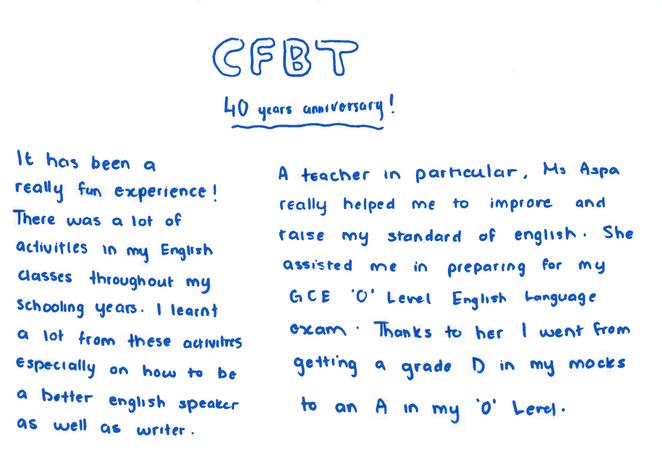 CFBT
40 years anniversary!
It has been a
really fun experience!
There was a lot of
activities in my English
classes throughout my
schooling years. I learnt
a lot from these activities
especially on how to be
a better english speaker
as well as writer.
A teacher in particular, Ms Aspa
really helped me to improve and
raise my standard of english. She
assisted me in preparing for my
GCE 'O' Level English Language
exam. Thanks to her I went from
getting a grade D in my mocks
to an A in my 'O' Level.